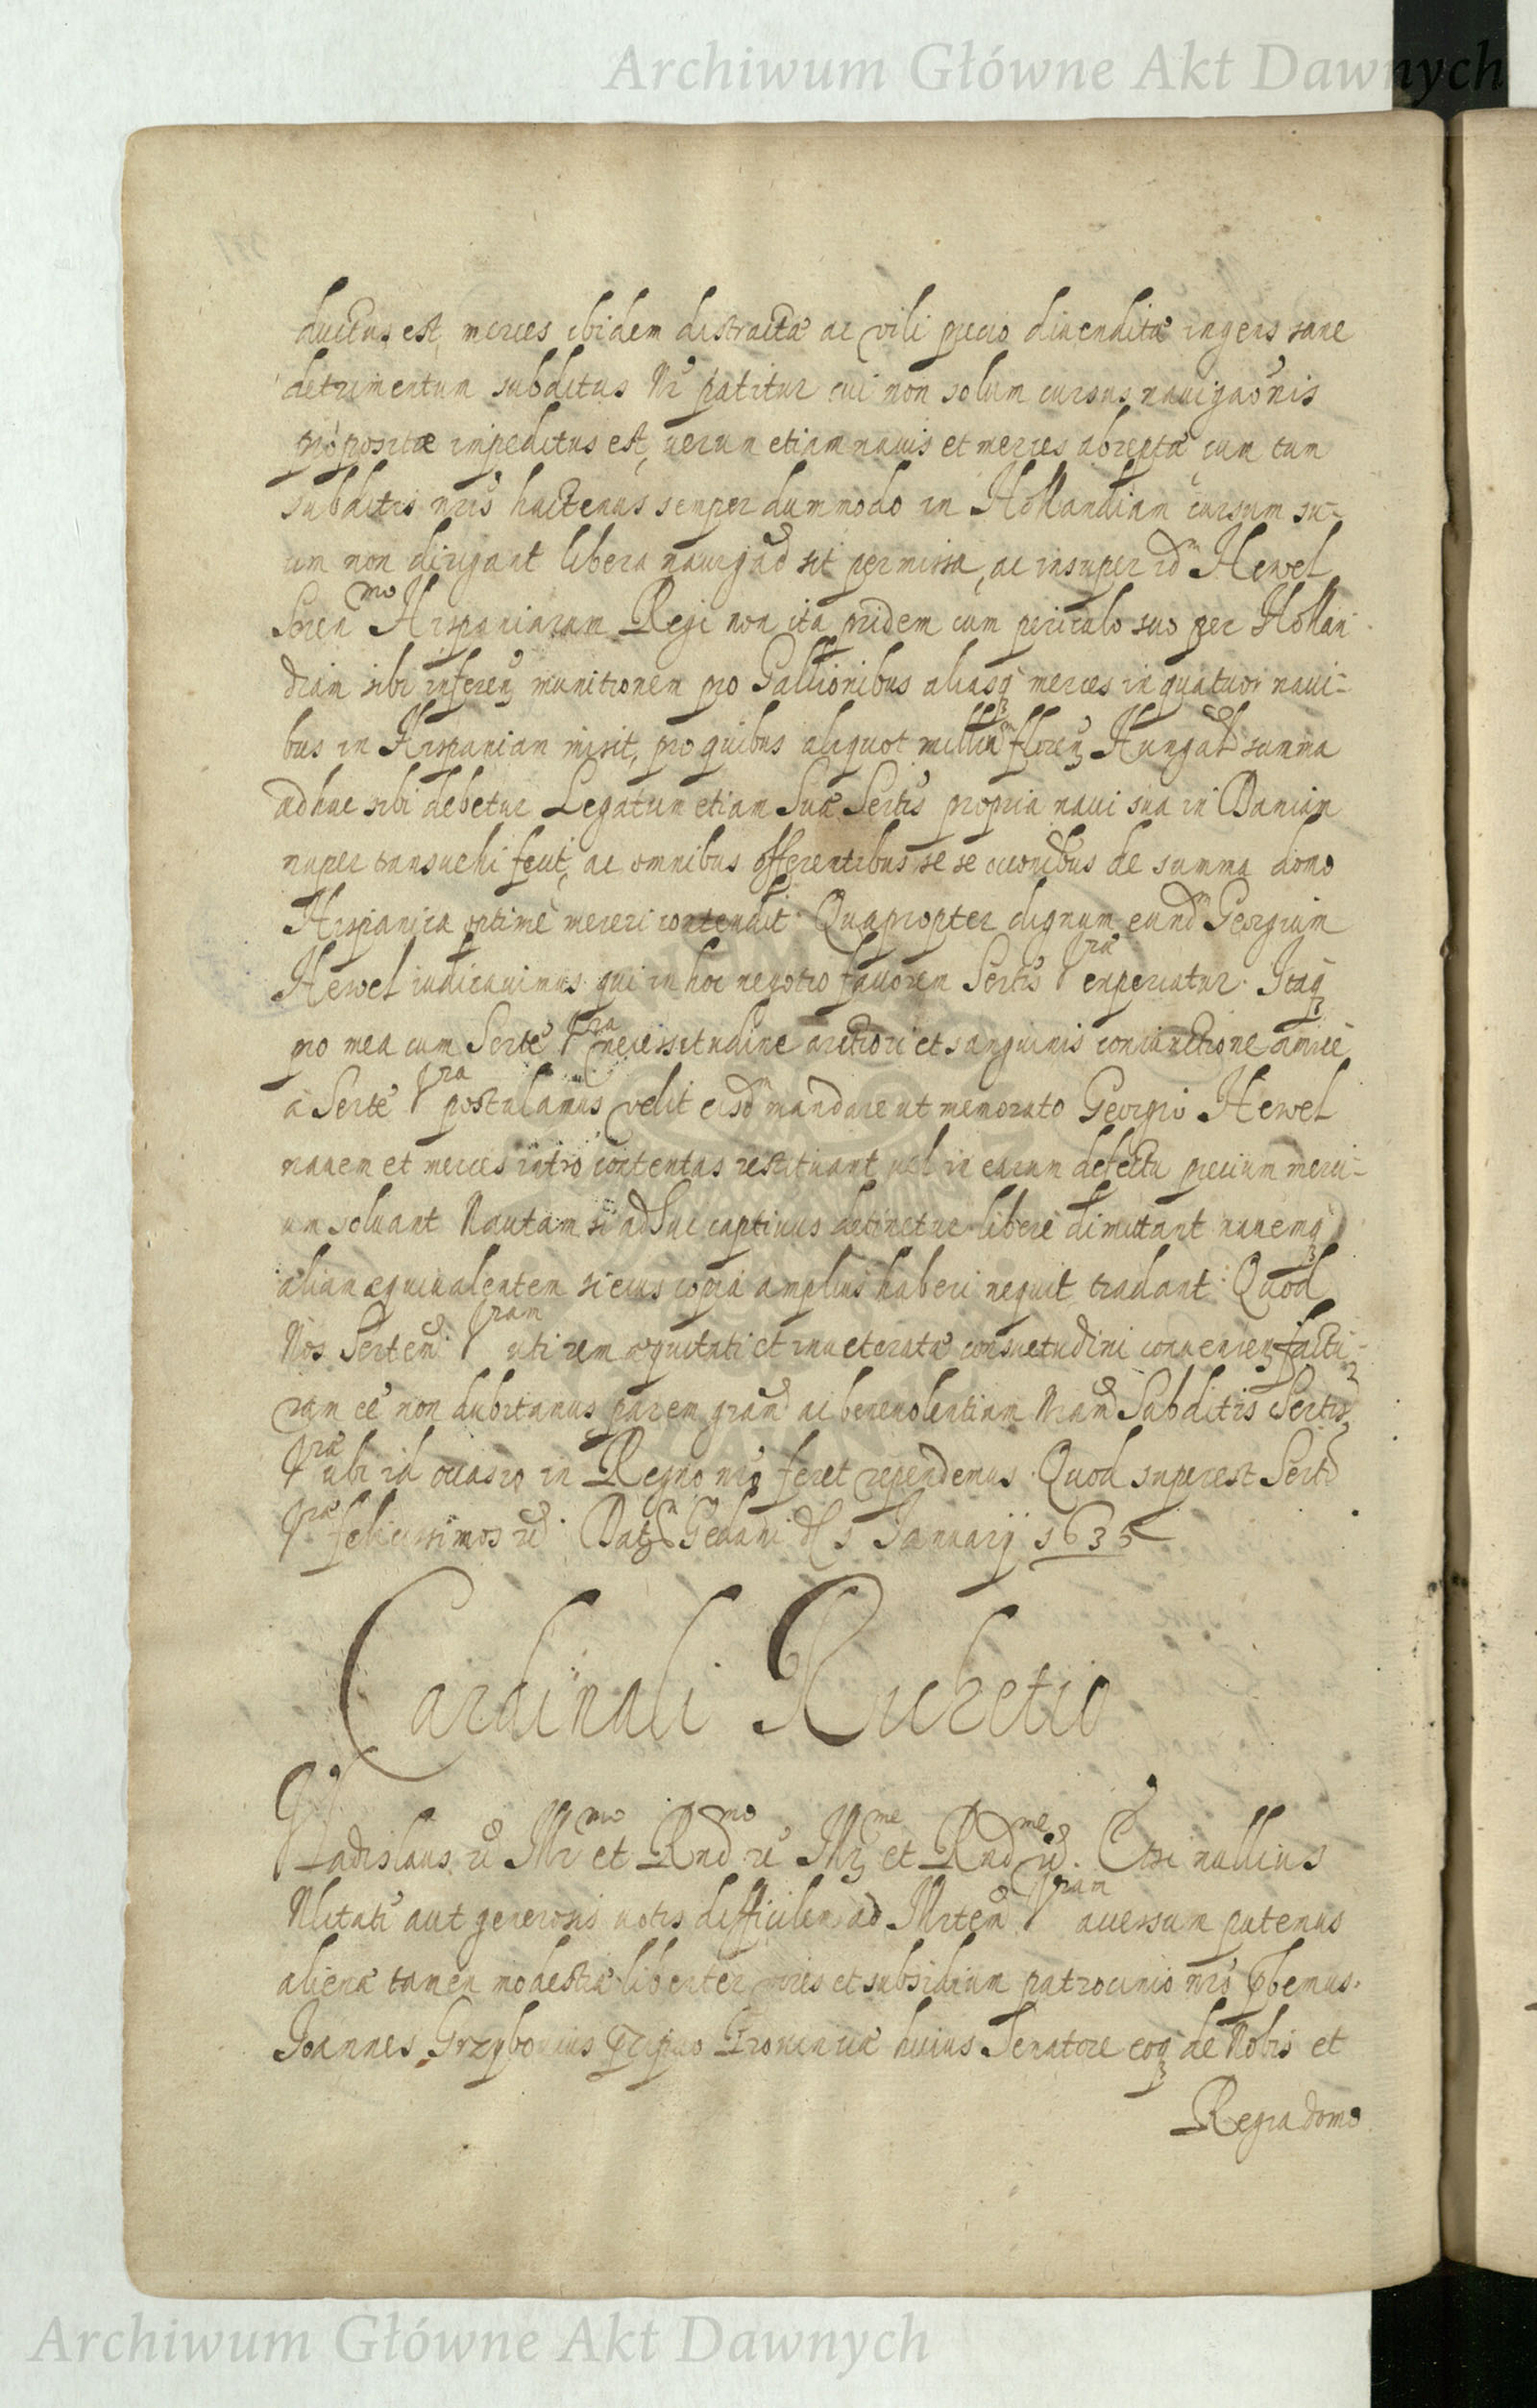 Archiwum Główne Akt Dawnych
ductus est, merces ibidem distractæ ac vili precio divenditæ ingens sane
detrimentum subditus Nr patitur cui non solum cursus nauigaõnis
propositæ impeditus est, uerum etiam nauis et merces abreptæ cum tum
subditis nris hactenus semper dummodo in Hollandiam cursum su-
um non dirigant libera nauigaõ sit permissa, ac insuper idm Hewel
Seren mo Hispaniarum Regi non ita pridem cum periculo suo per Hollan
diam sibi inferen munitionem pro Gallionibus aliasq merces in quatuor naui-
bus in Hispaniam misit, pro quibus aliquot millia floren Hungar summa
adhuc sibi debetur Legatum etiam Suæ Sertis propria naui sua in Daniam
nuper transuehi fecit, ac omnibus offerentibus se se occonibus de summa domo
Hispanica optime mereri contendit. Quapropter dignum eundm Georgium
Hewel iudicauimus qui in hoc negotio fauorem Sertis Vræ experiatur. Itaq
pro mea cum Serte Vra necessitudine arctiori et sanguinis coniunctione amice
a Serte Vra postulamus velit eisdm mandare ut memorato Georgio Hewel
nauem et merces intro contentas restituant uel in earum defectu precium merci-
um soluant Nautam si adhuc captiuus detinetur libere dimittant nauemq
aliam æquiualentem si eius copia amplius haberi nequit tradant. Quod
Nos Sertem Vram uti rem æquitati et inueteratæ consuetudini conuenien factu-
ram eë non dubitamus parem gram ac beneuolentiam Nram Subditis Sertis
Vræ ubi id occasio in Regno nro feret rependemus. Quod superest Serti
Vræ felicissimos &. Dat Gedani d 5 Januarij 1635
Cardinali Richetio
Vladislaus & Illr mo et Rnd mo & Illr me et Rnd me &. Etsi nullius
Nlitati aut generosis uotis difficilem ad Illrtem Vram auersum putemus
alienæ tamen modestiæ libenter uires et subsidium patrocinio nro phemus.
Joannes Grzybouius præcipuo Prouinciæ huius Senatore eoq de Nobis et
Regia domo
Archiwum Główne Akt Dawnych